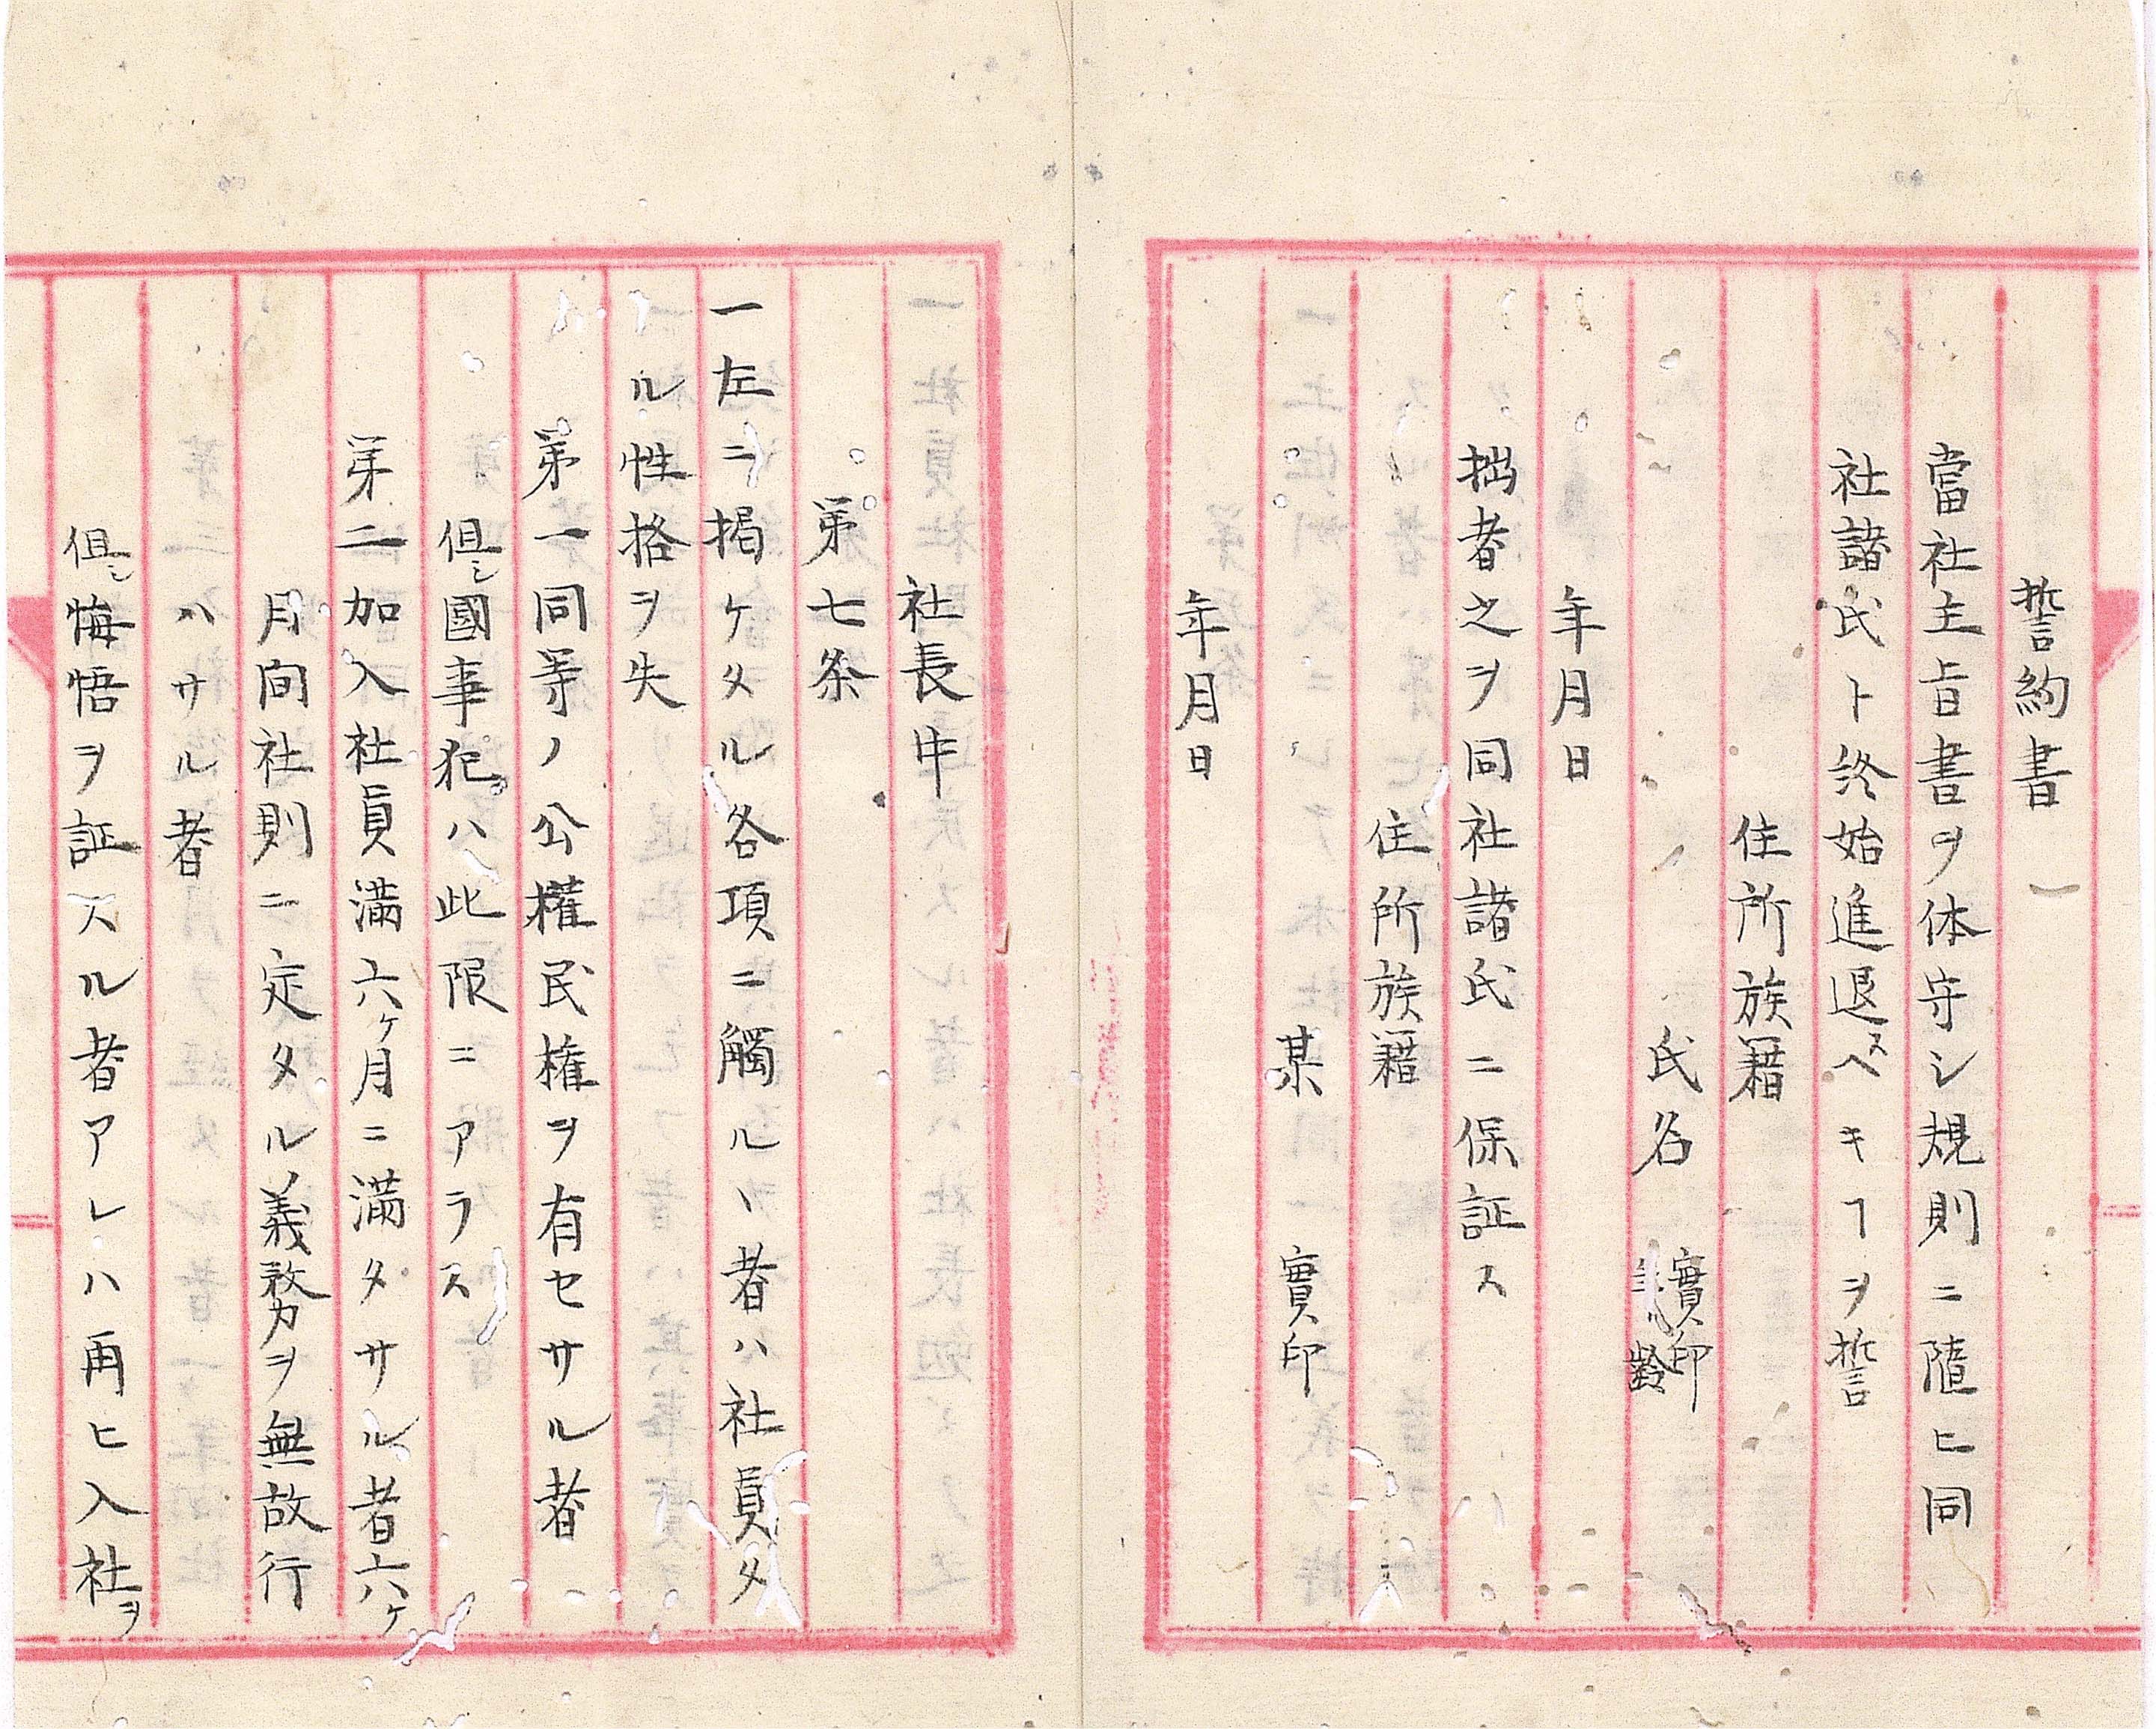 誓約書
當社主旨書ヲ体守シ規則ニ隨ヒ同
社諸氏ト終始進退スヘキヿヲ誓
住所族籍
氏名 實印
年齢
年月日
拙者之ヲ同社諸氏ニ保証ス
住所族籍
某 實印
年月日
社長中
第七条
一左ニ掲ケタル各項ニ觸ルヽ者ハ社員タ
ル性格ヲ失
第一同等ノ公權民権ヲ有セサル者
但シ國事犯ハ此限ニアラス
第二加入社員満六ヶ月ニ満タサル者六ヶ
月间社則ニ定タル義務ヲ無故行
ハサル者
但シ悔悟ヲ証スル者アレハ再ヒ入社ヲ